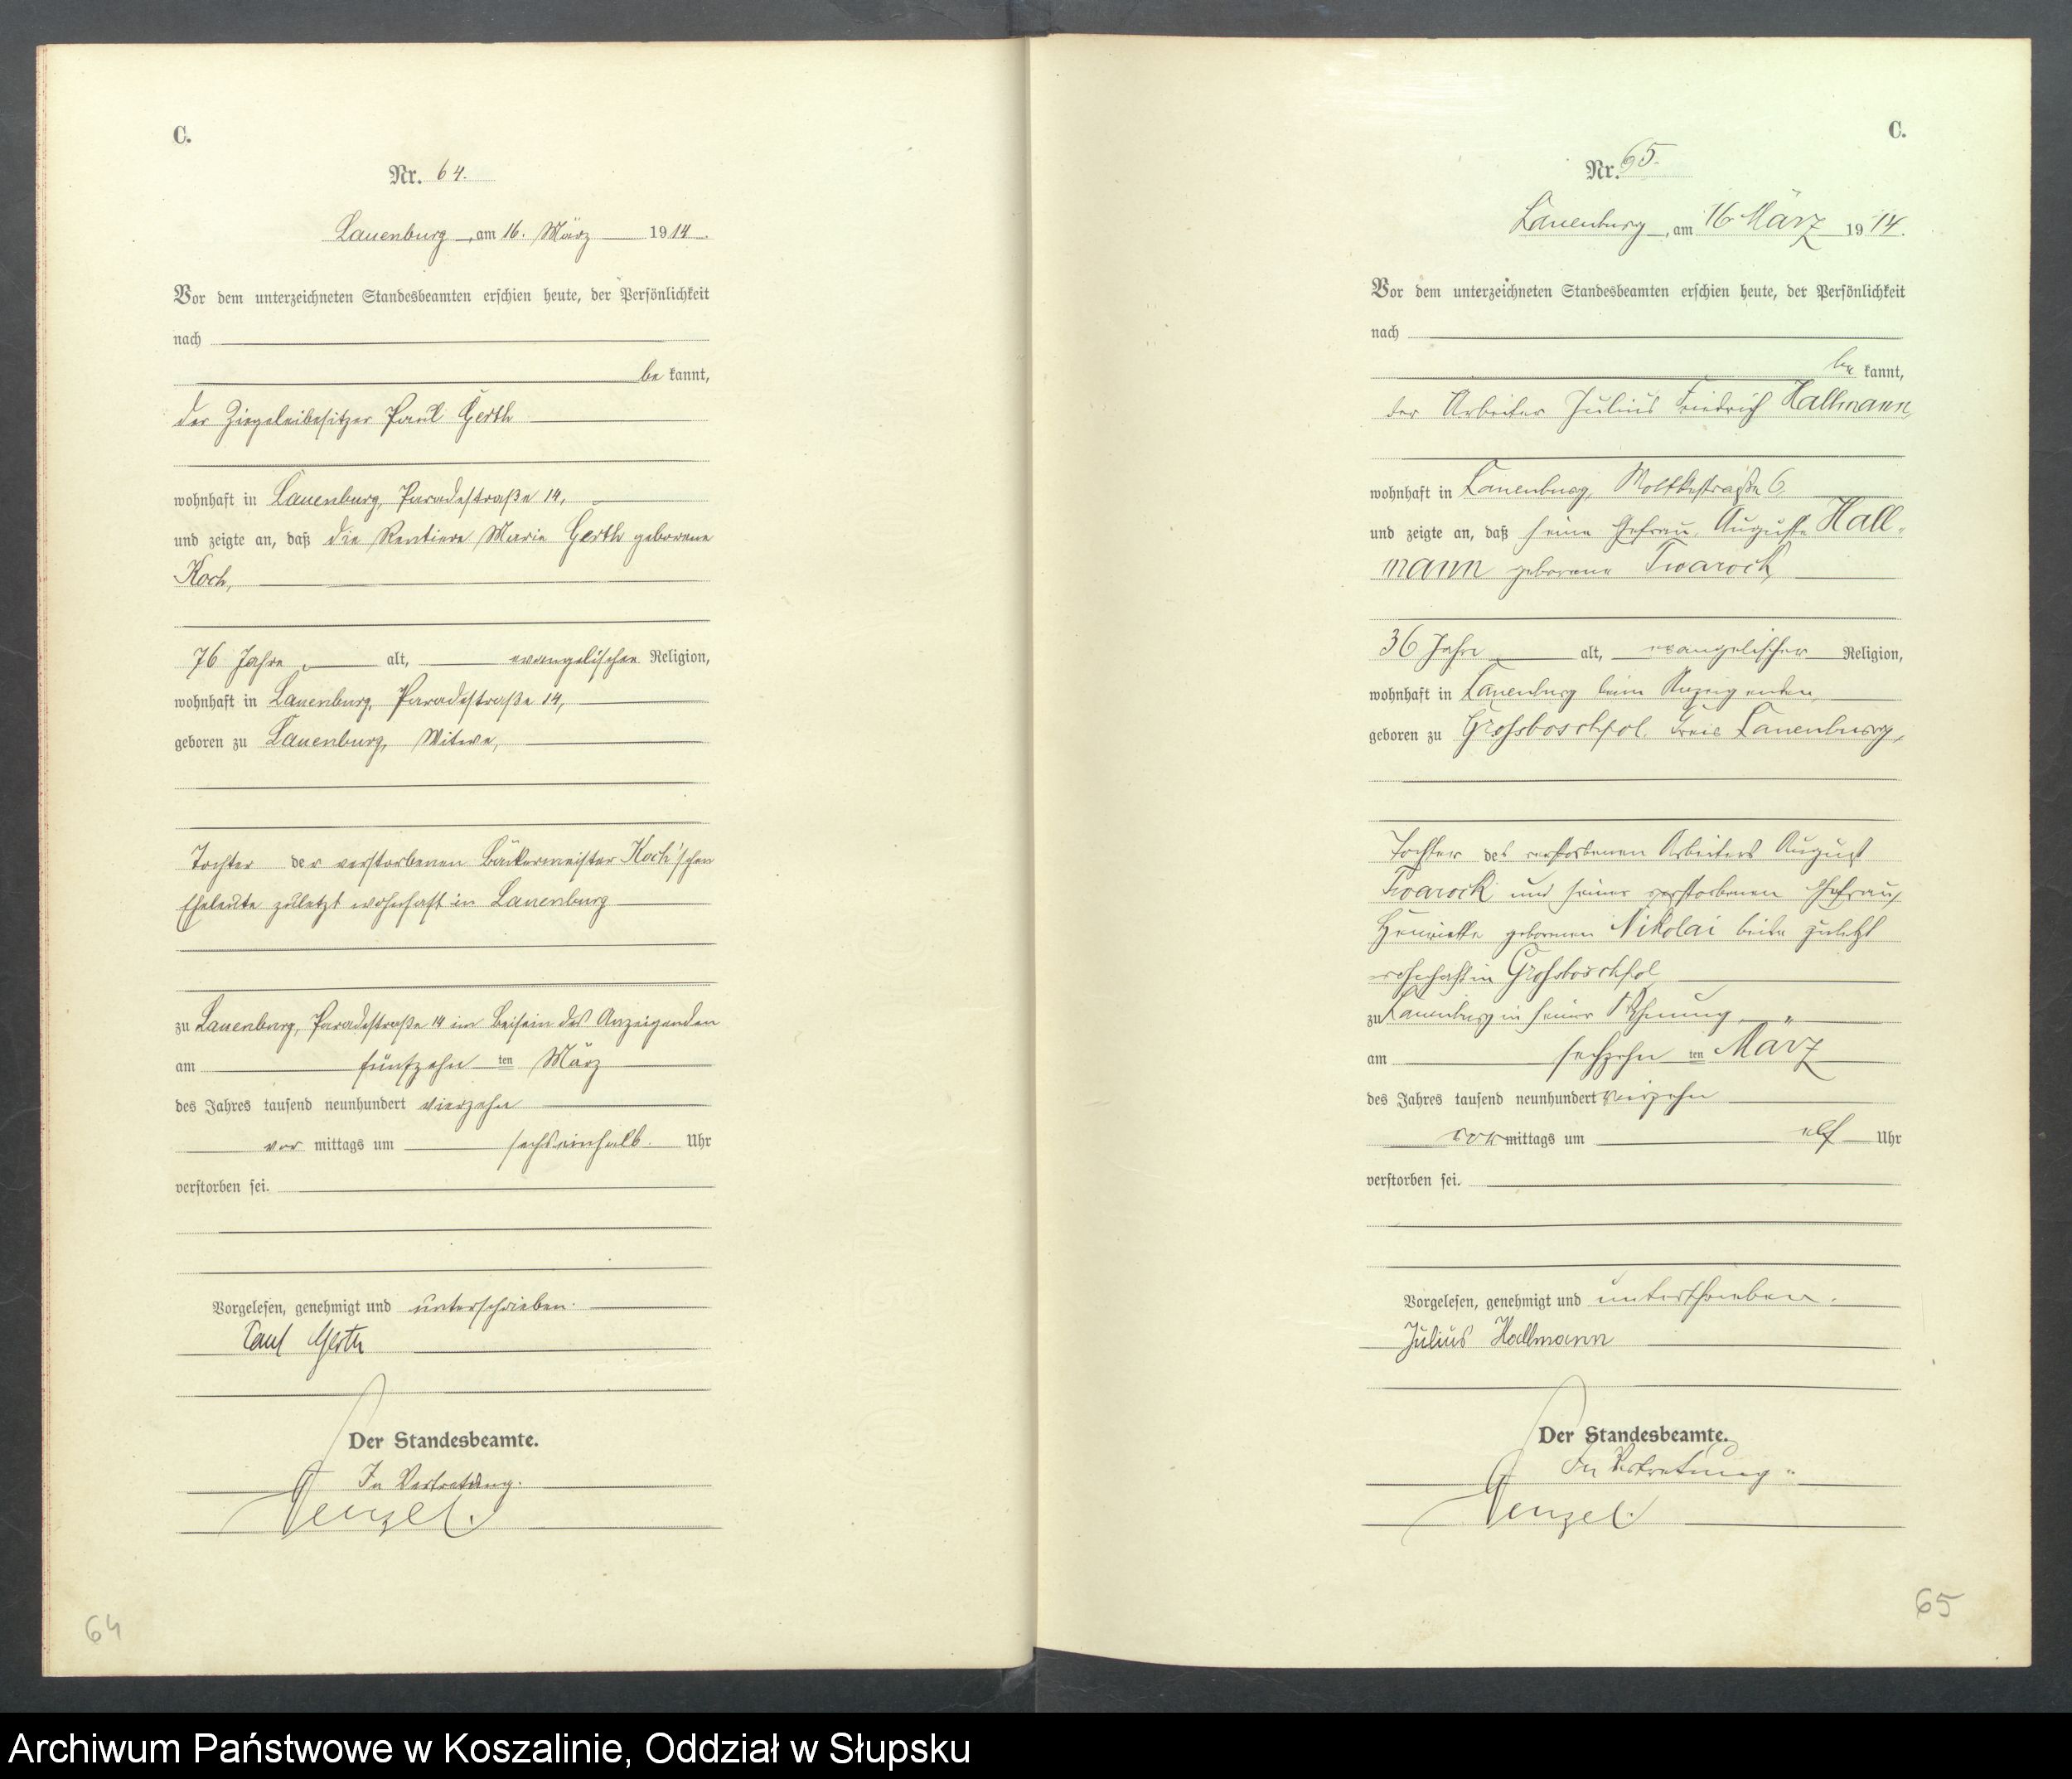 C.
Nr. 64.
Lauenburg, am 16. März 1914.
Vor dem unterzeichneten Standesbeamten erschien heute, der Persönlichkeit
nach
be kannt,
der Ziegeleibesitzer Paul Gerth
wohnhaft in Lauenburg, Paradestraße 14,
und zeigte an, daß die Rentiere Marie Gerth geborene
Koch,
76 Jahre alt, evangelischer Religion,
wohnhaft in Lauenburg, Paradestraße 14,
geboren zu Lauenburg, Witwe,
Tochter der verstorbenen Bäckermeister Koch'schen
Eheleute zuletzt wohnhaft in Lauenburg
zu Lauenburg, Paradestraße 14 im Beisein des Anzeigenden
am fünfzehn ten März
des Jahres tausend neunhundert vierzehn
vor mittags um sechseinhalb Uhr
verstorben sei.
Vorgelesen, genehmigt und unterschrieben.
Paul Gerth
Der Standesbeamte.
In Vertretung.
Wenzel.
64
C.
Nr. 65.
Lauenburg, am 16. März 1914.
Vor dem unterzeichneten Standesbeamten erschien heute, der Persönlichkeit
nach
be kannt,
der Arbeiter Julius Friedrich Hallmann,
wohnhaft in Lauenburg, Moltkestraße 6,
und zeigte an, daß seine Ehefrau, Auguste Hall-
mann geborene Twarock,
36 Jahre alt, evangelischer Religion,
wohnhaft in Lauenburg beim Anzeigenden,
geboren zu Grossboschpol, Kreis Lauenburg,
Tochter des verstorbenen Arbeiters August
Twarock und seiner verstorbenen Ehefrau,
Henriette geborenen Nikolai beide zuletzt
wohnhaft in Grossboschpol
zu Lauenburg in seiner Wohnung
am sechzehn ten März
des Jahres tausend neunhundert vierzehn
vor mittags um elf Uhr
verstorben sei.
Vorgelesen, genehmigt und unterschrieben.
Julius Hallmann
Der Standesbeamte.
In Vertretung.
Wenzel.
65
Archiwum Państwowe w Koszalinie, Oddział w Słupsku